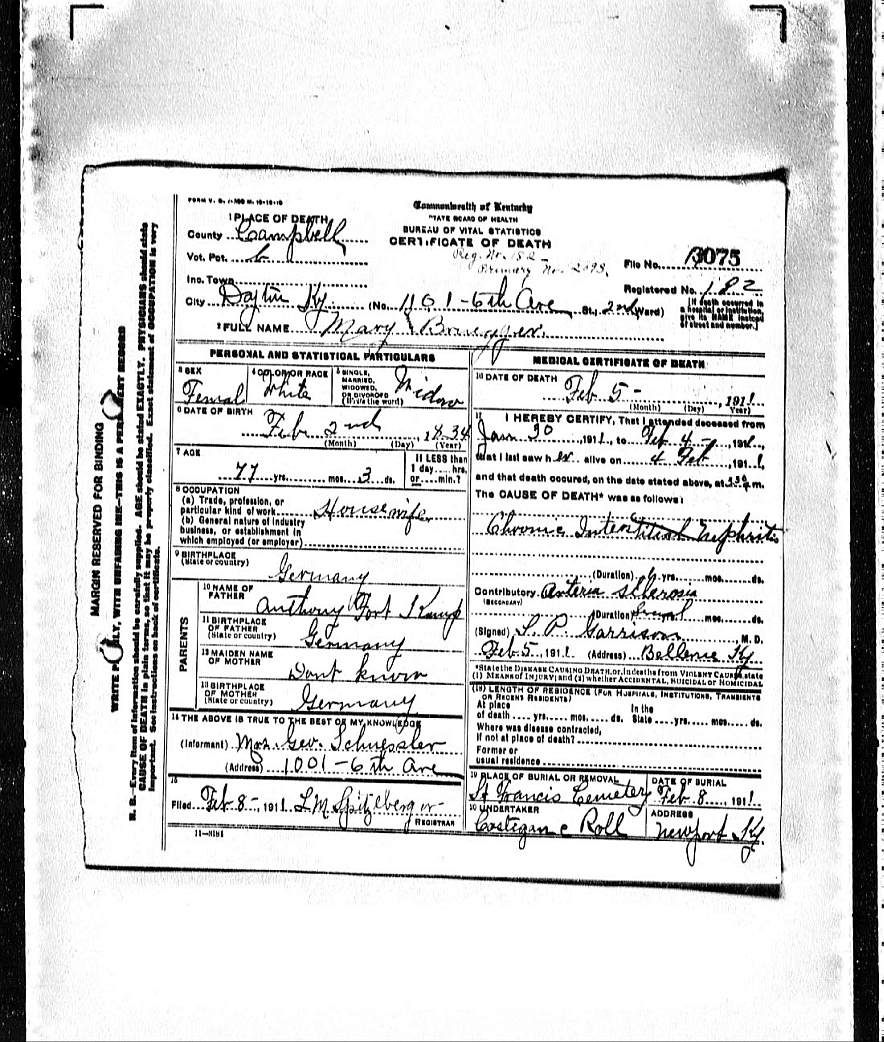 Commonwealth of Kentucky
STATE BOARD OF HEALTH
BUREAU OF VITAL STATISTICS
CERTIFICATE OF DEATH
Reg. No. 182
Primary No. 2098
1 PLACE OF DEATH
County Campbell
Vot. Pct. 6
Inc. Town
City Dayton Ky (No. 1101-6th Ave St., 2nd Ward)
File No. 3075
Registered No. 182
[If death occurred in a hospital or institution, give its NAME instead of street and number.]
2 FULL NAME Mary
PERSONAL AND STATISTICAL PARTICULARS
3 SEX Femal
4 COLOR OR RACE White
5 SINGLE, MARRIED, WIDOWED, OR DIVORCED (Write the word) Widow
6 DATE OF BIRTH Feb 2nd, 1834
(Month) (Day) (Year)
7 AGE 77 yrs. mos. 3 ds.
If LESS than 1 day.... hrs. or.... min.?
8 OCCUPATION
(a) Trade, profession, or particular kind of work Housewife
(b) General nature of industry business, or establishment in which employed (or employer)
9 BIRTHPLACE (State or country) Germany
PARENTS
10 NAME OF FATHER Anthony Fort Kamp
11 BIRTHPLACE OF FATHER (State or country) Germany
12 MAIDEN NAME OF MOTHER Dont know
13 BIRTHPLACE OF MOTHER (State or country) Germany
14 THE ABOVE IS TRUE TO THE BEST OF MY KNOWLEDGE
(Informant) Mrs. Geo. Schuessler
(Address) 1001-6th Ave
15
Filed Feb 8-, 1911 L.M. Spitzlberger
REGISTRAR
11-3181
MEDICAL CERTIFICATE OF DEATH
16 DATE OF DEATH Feb 5-, 1911
(Month) (Day) Year)
17 I HEREBY CERTIFY, That I attended deceased from
Jan 30, 1911, to Feb 4-, 1911,
that I last saw her alive on 4 Feb, 1911,
and that death occured, on the date stated above, at m.
The CAUSE OF DEATH* was as follows:
Chronic Interstitial Nephritis
(Duration) yrs. mos. ds.
Contributory Arteria Sclerosis
(SECONDARY)
(Duration) yrs. mos. ds.
(Signed) S. P. Garrison, M. D.
Feb 5, 1911 (Address) Bellevue Ky
*State the DISEASE CAUSING DEATH, or, in deaths from VIOLENT CAUSES, state (1) MEANS OF INJURY; and (2) whether ACCIDENTAL, SUICIDAL or HOMICIDAL
(18) LENGTH OF RESIDENCE (FOR HOSPITALS, INSTITUTIONS, TRANSIENTS OR RECENT RESIDENTS)
At place of death.... yrs. mos. ds. In the State.... yrs. mos. ds.
Where was disease contracted, if not at place of death?
Former or usual residence
19 PLACE OF BURIAL OR REMOVAL St Francis Cemetery
DATE OF BURIAL Feb 8, 1911
20 UNDERTAKER Costigan & Roll
ADDRESS Newport Ky.
MARGIN RESERVED FOR BINDING
WRITE PLAINLY, WITH UNFADING INK—THIS IS A PERMANENT RECORD
N. B.—Every item of information should be carefully supplied. AGE should be stated EXACTLY. PHYSICIANS should state
CAUSE OF DEATH in plain terms, so that it may be properly classified. Exact statement of OCCUPATION is very
important. See instructions on back of certificate.